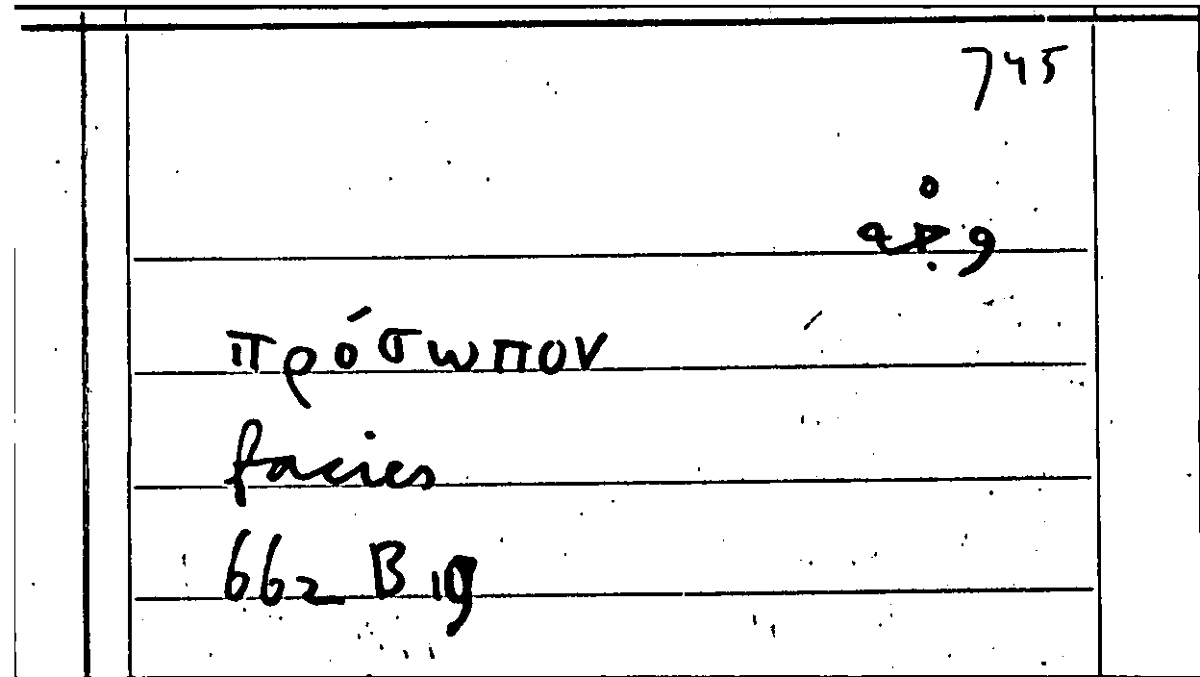 745
وجْه
πρόσωπον
facies
662 B 19